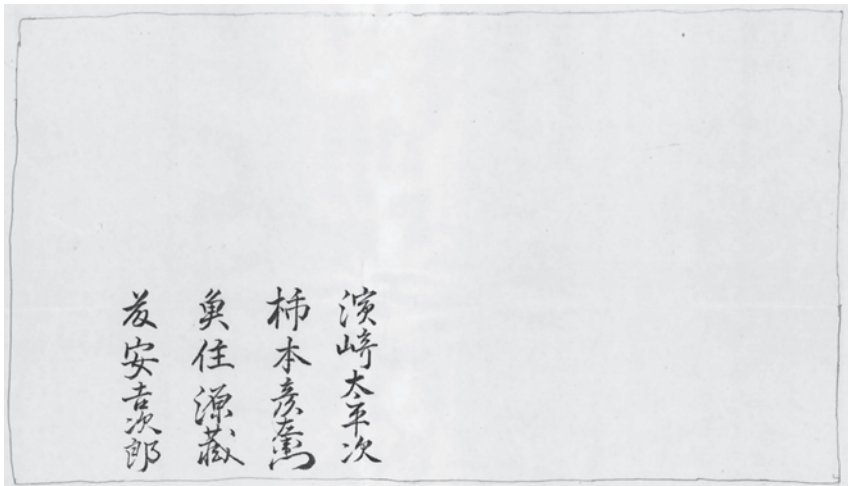 濱崎太平次
柿本彦左衛門
魚住源蔵
藤安吉次郎